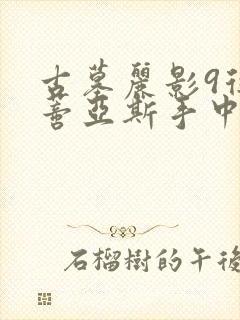 古墓麗影9
善亞斯手中
石榴樹的午後